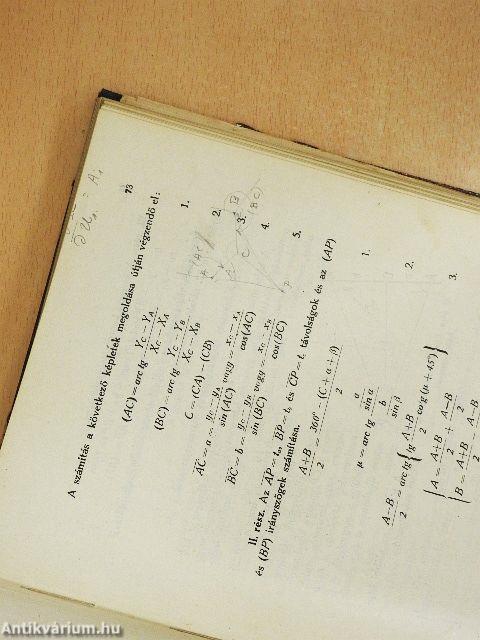 73
A számítás a következő képletek megoldása útján végzendő el:
(AC) = arc tg (Y_C − Y_A) / (X_C − X_A) 1.
(BC) = arc tg (Y_C − Y_B) / (X_C − X_B) 2.
C = (CA) − (CB) 3.
AC = a = (y_C − y_A) / sin (AC) vagy = (x_C − x_A) / cos(AC) 4.
BC = b = (y_C − y_B) / sin (BC) vagy = (x_C − x_B) / cos(BC) 5.
II. rész. Az AP = t_a, BP = t_b és CP = t_c távolságok és az (AP)
és (BP) irányszögek számítása.
(A+B) / 2 = (360° − (C + α + β)) / 2 1.
μ = arc tg (a / sin α) / (b / sin β) 2.
(A−B) / 2 = arc tg { tg (A+B)/2 cotg (μ + 45°) } 3.
A = (A+B)/2 + (A−B)/2
B = (A+B)/2 − (A−B)/2
Antikvárium.hu